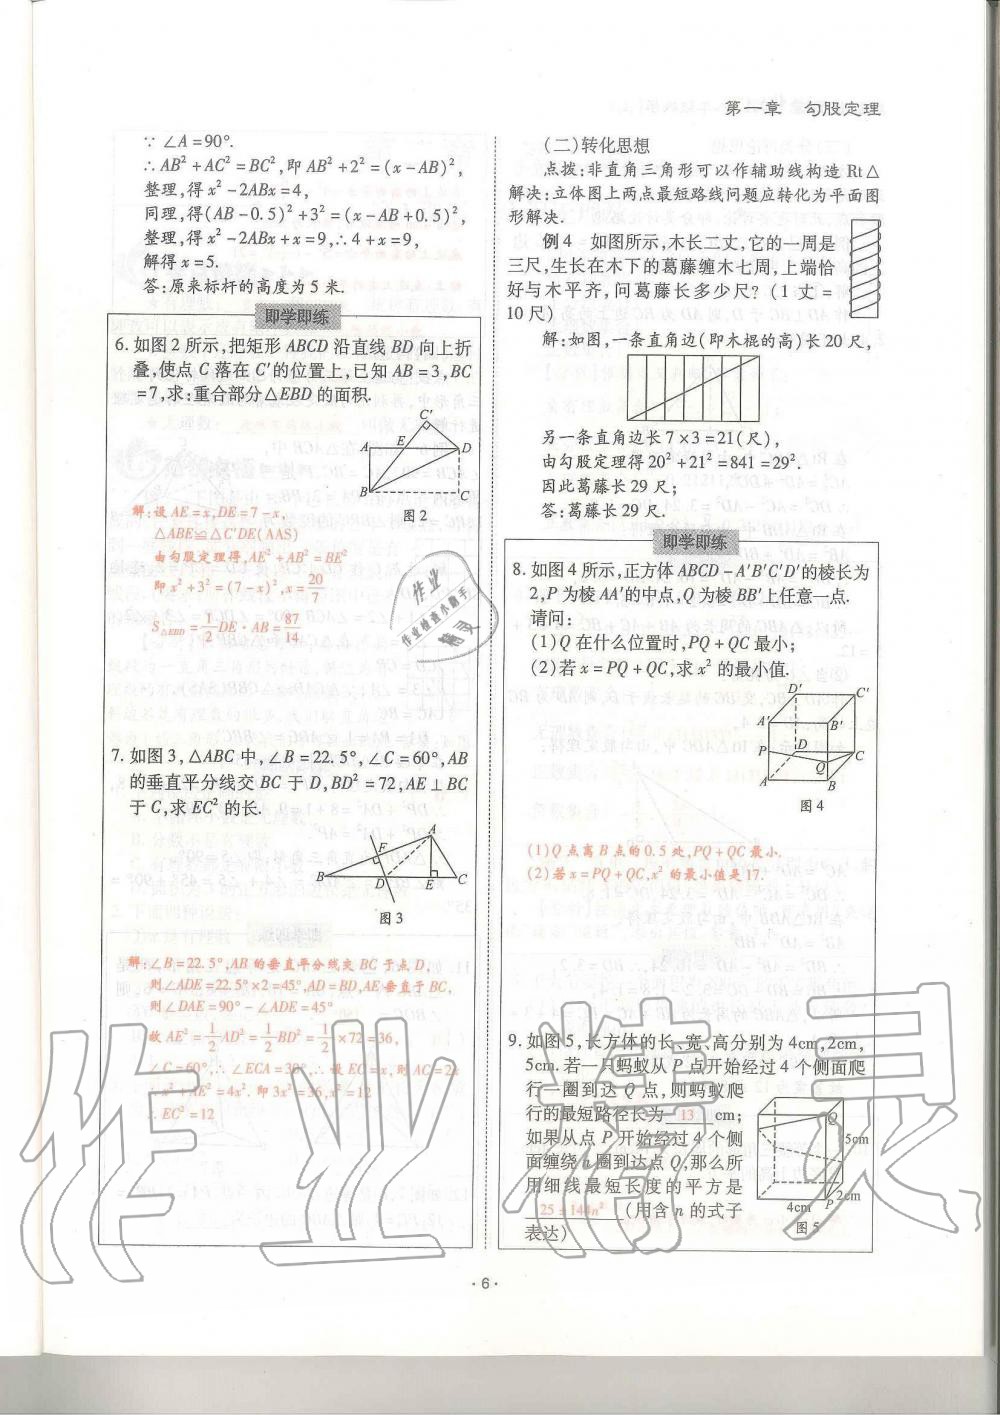 第一章 勾股定理
∵∠A=90°.
∴AB²+AC²=BC²,即AB²+2²=(x-AB)²,
整理,得x²-2ABx=4,
同理,得(AB-0.5)²+3²=(x-AB+0.5)²,
整理,得x²-2ABx+x=9,∴4+x=9,
解得x=5.
答:原来标杆的高度为5米.
即学即练
6.如图2所示,把矩形ABCD沿直线BD向上折
叠,使点C落在C′的位置上,已知AB=3,BC
=7,求:重合部分△EBD的面积.
C′
A E D
B C
图2
解:设AE=x,DE=7-x,
△ABE≌△C′DE(AAS)
由勾股定理得,AE²+AB²=BE²
即x²+3²=(7-x)²,x=20/7
S△EBD=1/2 DE·AB=87/14
7.如图3,△ABC中,∠B=22.5°,∠C=60°,AB
的垂直平分线交BC于D,BD²=72,AE⊥BC
于C,求EC²的长.
A
F
B D E C
图3
解:∠B=22.5°,AB的垂直平分线交BC于点D,
则∠ADE=22.5°×2=45°,AD=BD,AE垂直于BC,
则∠DAE=90°-∠ADE=45°
故AE²=1/2AD²=1/2BD²=1/2×72=36,
∠C=60°,∴∠ECA=30°,∴设EC=x,则AC=2x
∴x²+AE²=4x².即3x²=36,x²=12
∴EC²=12
(二)转化思想
点拨:非直角三角形可以作辅助线构造Rt△
解决;立体图上两点最短路线问题应转化为平面图
形解决.
例4 如图所示,木长二丈,它的一周是
三尺,生长在木下的葛藤缠木七周,上端恰
好与木平齐,问葛藤长多少尺?(1丈=
10尺)
解:如图,一条直角边(即木棍的高)长20尺,
另一条直角边长7×3=21(尺),
由勾股定理得20²+21²=841=29².
因此葛藤长29尺;
答:葛藤长29尺.
即学即练
8.如图4所示,正方体ABCD-A′B′C′D′的棱长为
2,P为棱AA′的中点,Q为棱BB′上任意一点.
请问:
(1)Q在什么位置时,PQ+QC最小;
(2)若x=PQ+QC,求x²的最小值.
D′ C′
A′ B′
P D C
Q
A B
图4
(1)Q点离B点的0.5处,PQ+QC最小.
(2)若x=PQ+QC,x²的最小值是17.
9.如图5,长方体的长、宽、高分别为4cm,2cm,
5cm.若一只蚂蚁从P点开始经过4个侧面爬
行一圈到达Q点,则蚂蚁爬
行的最短路径长为 13 cm;
如果从点P开始经过4个侧
面缠绕n圈到达点Q,那么所
用细线最短长度的平方是
25+144n² (用含n的式子
表达)
Q
5cm
2cm
4cm P
图5
作业
作业检查小助手
精灵
作业精灵
·6·